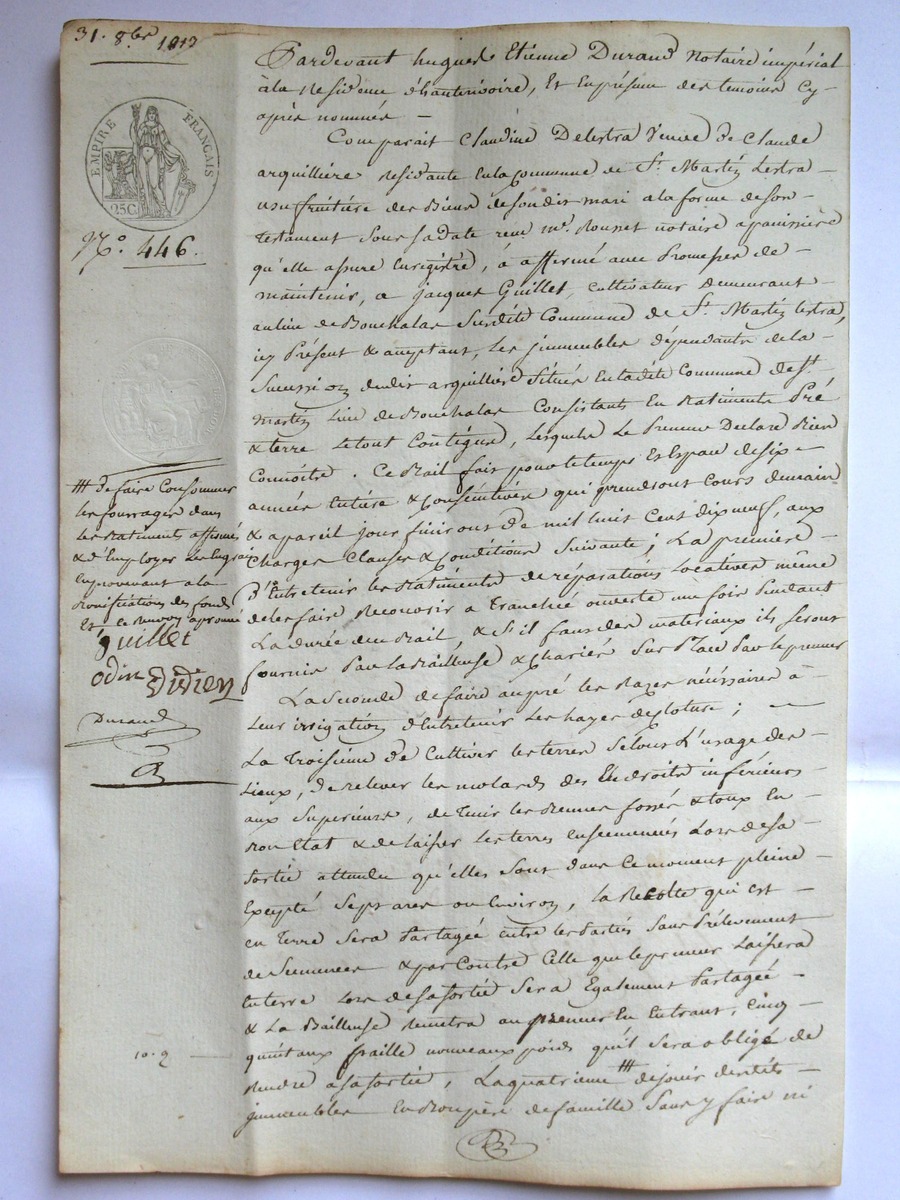 31. 8bre 1813
EMPIRE FRANÇAIS
25 C.
N.o 446.
Pardevant hugues Etienne Durand Notaire impérial
à la Residence d'hauterivoire, Et En présence des temoins Cy-
après nommés —
Comparait Claudine Delestra Veuve de Claude
arquillière residante en la Commune de St. Martin Lestra —
usufruitière des Biens de son dit mari a la forme de son —
testament sous sa date reçu me. Rousset notaire a panissière
qu'elle assure Enregistré, à affermé avec Promesses de —
maintenir, a jacques Guillet, cultivateur demeurant
au lieu de Bouchalas susdite Commune de St. Martin lestra,
icy Présent & acceptant, les jmmeubles dépendants de la —
Succession dudit arquillière Situés En la dite Commune de St.
martin lieu de Bouchalas Consistants En Batiments Pré
& terre le tout Contigus, lesquels le Preneur Declare Bien
Connoitre. Ce Bail fait pour le temps Et Espace de six —
années Entières & Consécutives qui prendront Cours demain
& a pareil jour finiront de mil huit Cent dix neuf, aux
Charges Clauses & Conditions Suivantes; La première —
d'Entretenir les Batiments de réparations Locatives même
de les faire Recouvrir a Tranchée ouverte une fois Pendant
La durée du Bail, & s'il faut des materiaux ils seront
fournis Par la Bailleuse & Chariés Sur Place Par le preneur
La Seconde de faire au pré les Razes nécéssaires à —
leur irrigation d'Entretenir les hayes de cloture; —
La Troisieme de Cultiver les terres Selon L'usage des —
Lieux, de relever les molards des Endroits inférieurs
aux Superieurs, de Tenir les Bennes fossés & toux En
Bon Etat & de laisser les terres Ensemencées Lors de sa —
Sortie attendu qu'elles Sont dans Ce moment pleines —
Excepté Sept ares ou Environ, la Recolte qui est —
en Terre Sera Partagée entre les Parties Sans Prélevement
de Semences & par Contre Celle que le preneur Laissera
En terre Lors de sa sortie Sera Egalement Partagée —
& La Bailleuse remettra au preneur En Entrant, Cinq —
quintaux Paille nouveaux poids qu'il Sera obligé de
Rendre a sa sortie, La quatrieme # de jouir desdits —
jmmeubles En Bon père de famille Sans y faire ni
# de faire Consommer
les fourrages dans
les Batiments affermés,
& d'Employer les Engrais
En provenant a la
Bonification des fonds
Et le Renvoy aprouvé
guillet
odin Didier
Durand
10. 9